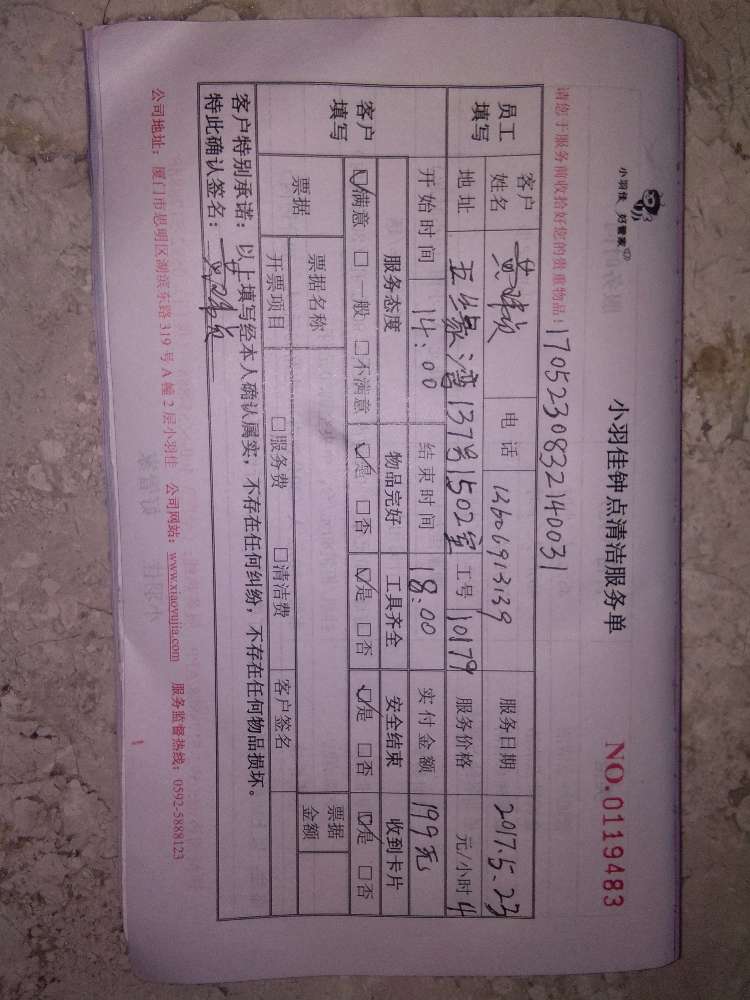 小羽佳 好管家
小羽佳钟点清洁服务单
NO.0119483
请您于服务前收拾好您的贵重物品！
1705230832140031
员工填写 客户姓名 电话 13606913139 服务日期 2017.5.23
地址 五缘湾137号1502室 工号 10179 服务价格 元/小时 4
开始时间 14:00 结束时间 18:00 实付金额 199元
客户填写 服务态度 物品完好 工具齐全 安全结束 收到卡片
☑满意 □一般 □不满意 ☑是 □否 ☑是 □否 ☑是 □否 ☑是 □否
票据 票据名称 票据金额
开票项目 □服务费 □清洁费 客户签名
客户特别承诺：以上填写经本人确认属实，不存在任何纠纷，不存在任何物品损坏。
特此确认签名：
公司地址：厦门市思明区湖滨东路319号A幢2层小羽佳 公司网站：www.xiaoyujia.com 服务监督热线：0592-5888123